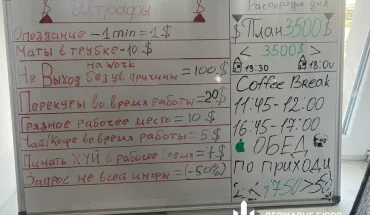 Штрафы
Опоздание – 1 min = 1$
Маты в трубке – 10$
Не Выход на work без ув. причины = 100$
Перекуры во время работы = 20$
Грязное рабочее место = 10$
Чай/Кофе во время работы = 5$
Пинать ХУЙ в рабочее время = 7$
Запрос не всей инфы = (-50%)
Распорядок дня
План 3500$
< 3500$ >
19:30
18:00
Coffee Break
11:45-12:00
16:45-17:00
ОБЕД
по приходу
ДЕРЖАВНЕ БЮРО